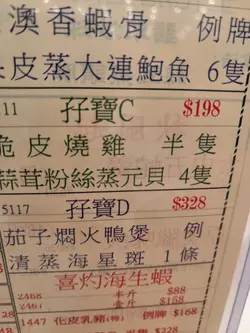 澳香蝦骨 例牌
皮蒸大連鮑魚 6隻
11 孖寶C $198
脆皮燒雞 半隻
蒜茸粉絲蒸元貝 4隻
5117 孖寶D $328
茄子燜火鴨煲 例
清蒸海星斑 1條
喜灼海生蝦
2468 半斤 $88
2467 壹斤 $168
1447 化皮乳豬(特) 例牌 $168